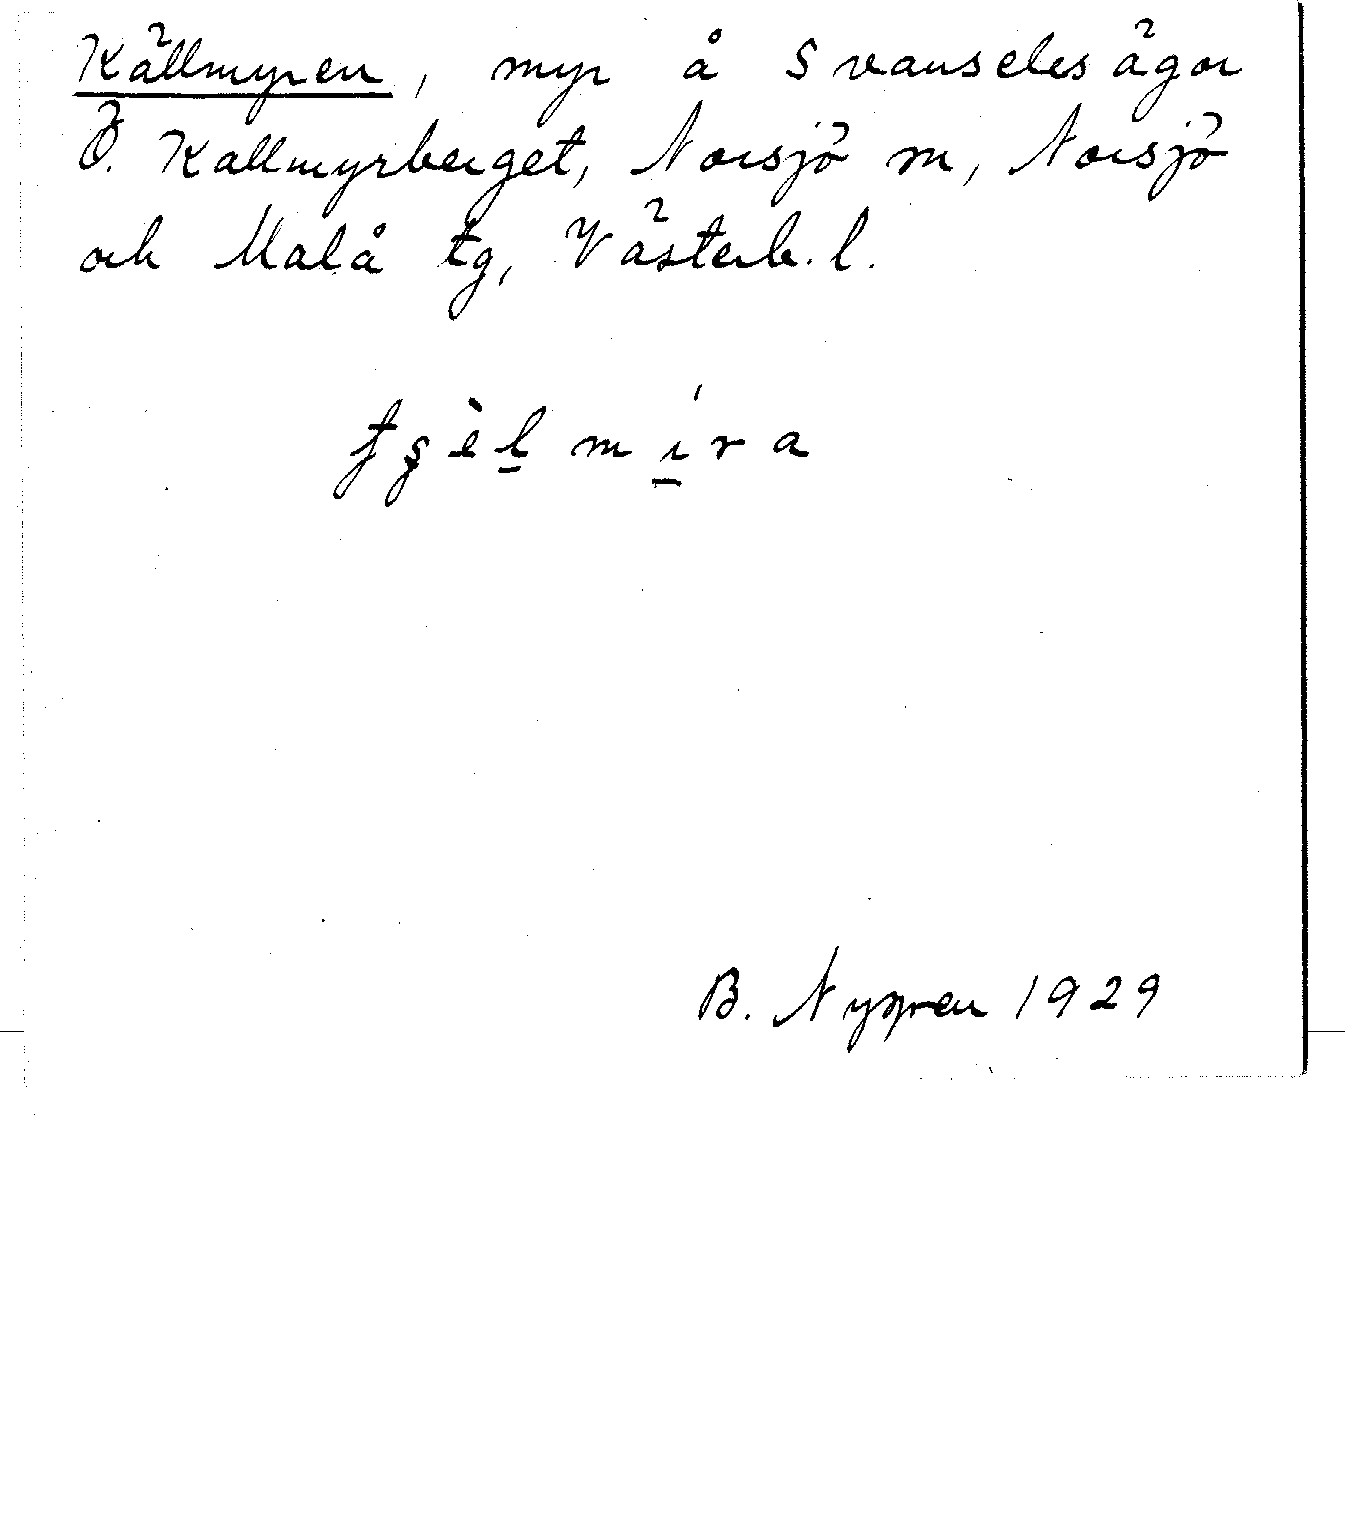 Källmyren, myr å Svanseles ägor
Ö. Kallmyrberget, Norsjö sn, Norsjö
och Malå tg, Västerb. l.
tşèl míra
B. Nygren 1929